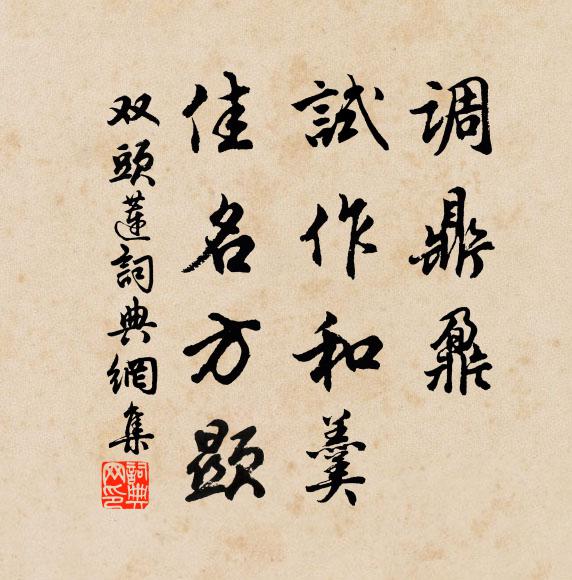 调鼎鼐
試作和羹
佳名方顯
双頭蓮詞典網集
詞典网印